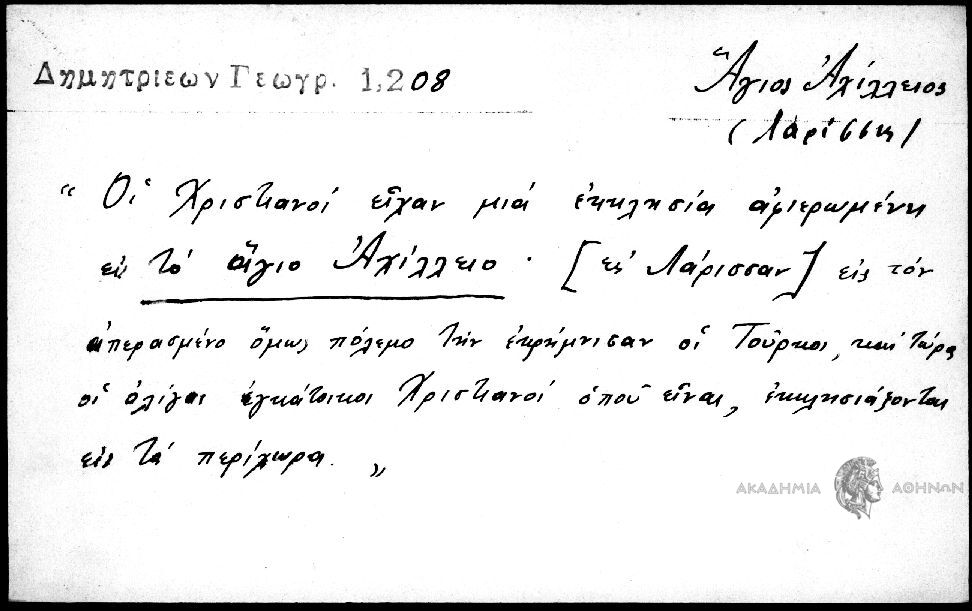 Δημητριεων Γεωγρ. 1,208
Ἅγιος Ἀχίλλειος
(Λαρίσσης)
"Οἱ Χριστιανοί εἶχαν μιά ἐκκλησία ἀφιερωμένη
εἰς τό ἅγιο Ἀχίλλειο · [εἰς Λάρισσαν] εἰς τόν
ἀπερασμένο ὅμως πόλεμο τήν ἐκρήμνισαν οἱ Τοῦρκοι, καί τώρα
οἱ ὀλίγοι ἐγκάτοικοι Χριστιανοί ὁποῦ εἶναι, ἐκκλησιάζονται
εἰς τά περίχωρα. „
ΑΚΑΔΗΜΙΑ ΑΘΗΝΩΝ